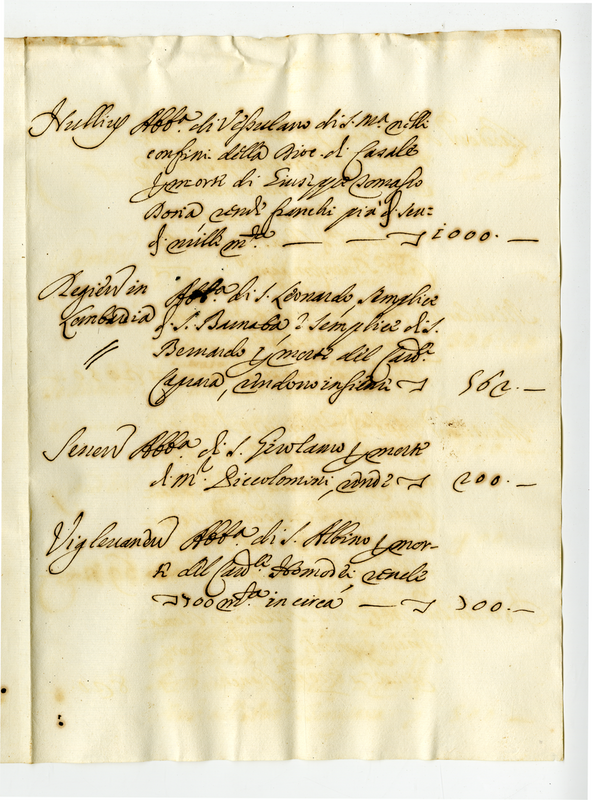 Nullius Abb.a di Vessulano di S. M.a nelli
confini della Dioc. di Casale
p morte di Giuseppe Tomaso
Doria rende franchi più di scu=
di mille m.ta — — ▽ 1000. —
Regien in Abb.a di S. Leonardo semplice
Lombardia di S. Barnaba e semplice di S.
〃 Bernardo p morte del Card.
Caprara, rendono insieme ▽ 562. —
Senen Abb.a di S. Girolamo p morte
di m.r Piccolomini, rende ▽ 200. —
Viglevanen Abb.a di S. Albino p mor-
te del Card.le Homodei rende
▽ 300 m.ta incirca — ▽ 300. —